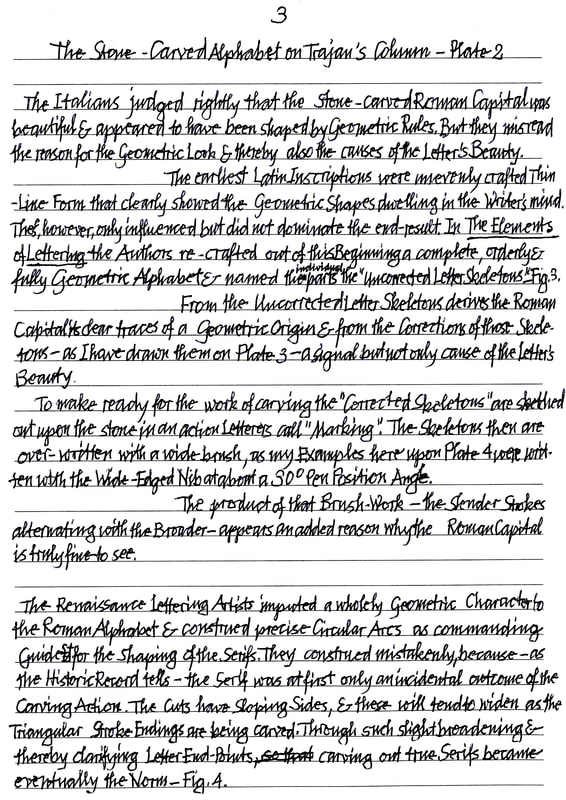 3
The Stone-Carved Alphabet on Trajan's Column - Plate 2
The Italians judged rightly that the Stone-carved Roman Capital was
beautiful & appeared to have been shaped by Geometric Rules. But they misread
the reason for the Geometric Look & thereby also the causes of the Letter's Beauty.
The earliest Latin Inscriptions were unevenly crafted Thin
-Line Form that clearly showed the Geometric Shapes dwelling in the Writer's mind.
These, however, only influenced but did not dominate the end-result. In The Elements
of Lettering the Authors re-crafted out of this Beginning a complete, orderly &
fully Geometric Alphabet & named the individual parts the "Uncorrected Letter Skeletons". Fig. 3.
From the Uncorrected Letter Skeletons derives the Roman
Capital its clear traces of a Geometric Origin & from the Corrections of those Skele-
tons - as I have drawn them on Plate 3 - a signal but not only cause of the Letter's
Beauty.
To make ready for the work of carving the "Corrected Skeletons" are sketched
out upon the stone in an action Letterers call "Marking". The Skeletons then are
over-written with a wide-brush, as my Examples here upon Plate 4 were writ-
ten with the Wide-Edged Nib at about a 30° Pen Position Angle.
The product of that Brush-Work - the Slender Strokes
alternating with the Broader - appears an added reason why the Roman Capital
is truly fine to see.
The Renaissance Lettering Artists imputed a wholely Geometric Character to
the Roman Alphabet & construed precise Circular Arcs as commanding
Guides for the Shaping of the Serifs. They construed mistakenly, because - as
the Historic Record tells - the Serif was at first only an incidental outcome of the
Carving Action. The Cuts have Sloping Sides, & these will tend to widen as the
Triangular Stroke Endings are being carved. Through such slight broadening &
thereby clarifying Letter End-Points, so that carving out true Serifs became
eventually the Norm - Fig. 4.